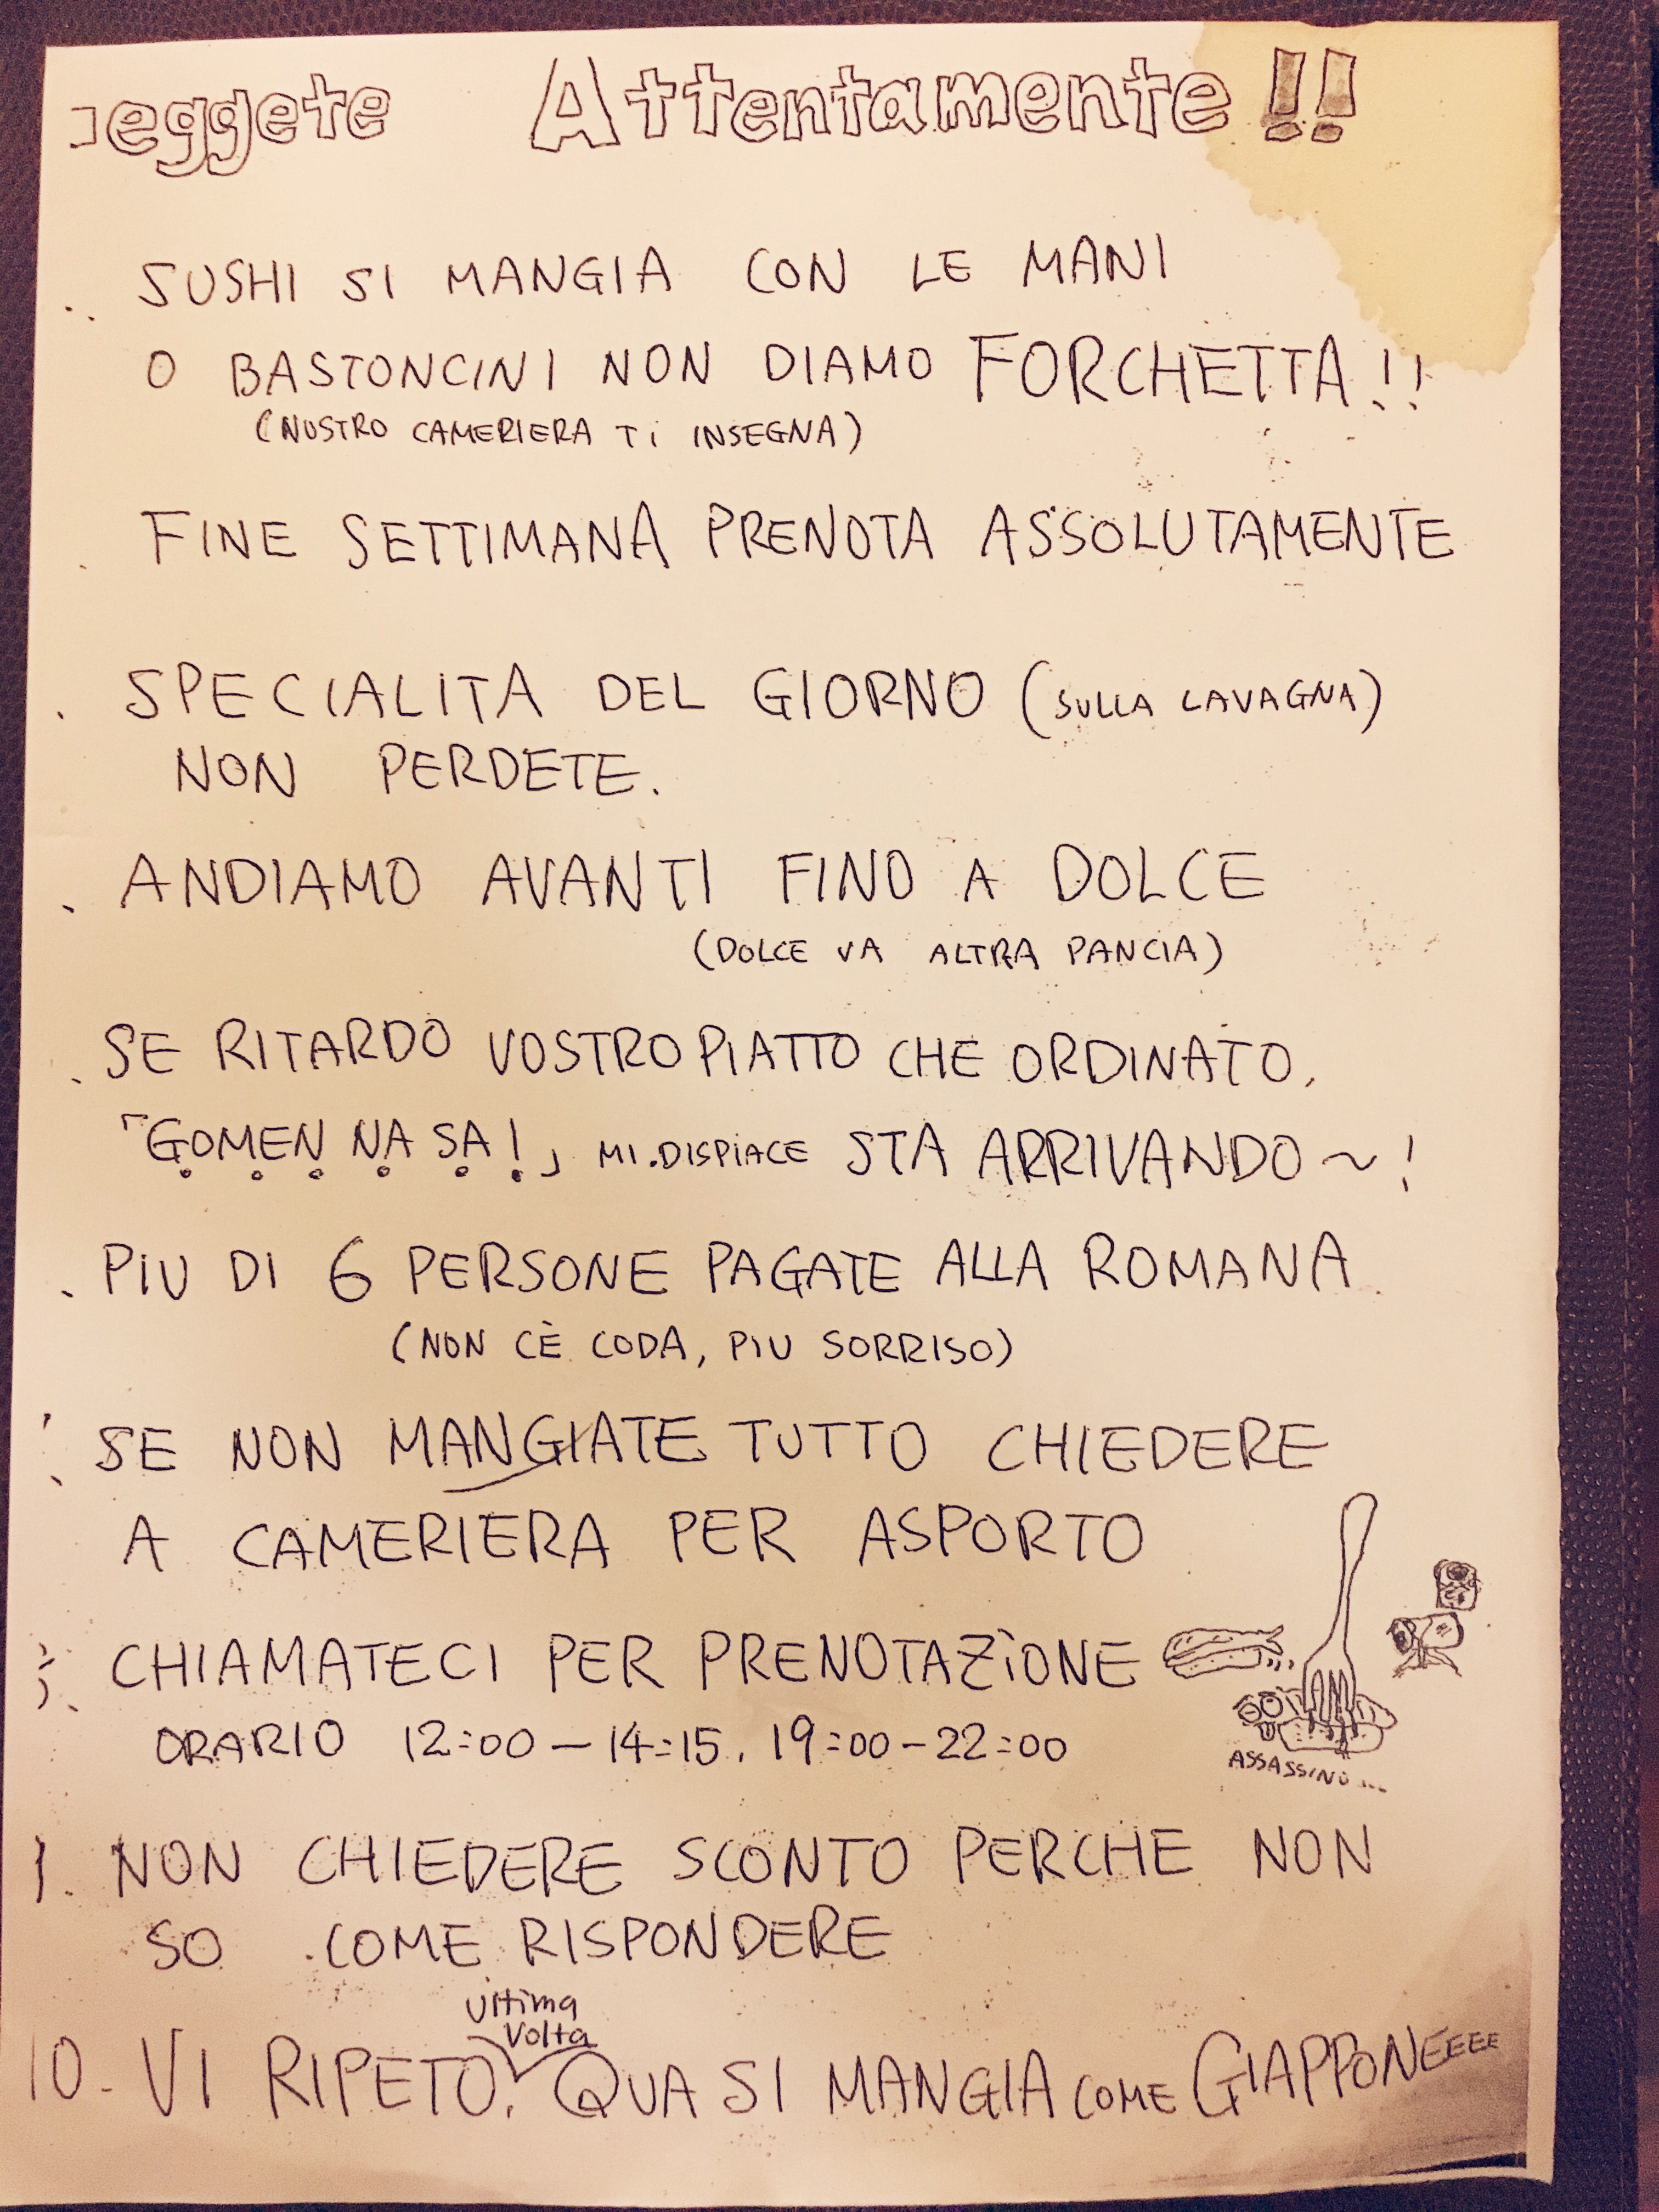 eggete Attentamente!!
SUSHI SI MANGIA CON LE MANI
O BASTONCINI NON DIAMO FORCHETTA!!
(NOSTRO CAMERIERA Ti INSEGNA)
FINE SETTIMANA PRENOTA ASSOLUTAMENTE
SPECIALITA DEL GIORNO (SULLA LAVAGNA)
NON PERDETE.
ANDIAMO AVANTI FINO A DOLCE
(DOLCE VA ALTRA PANCIA)
SE RITARDO VOSTRO PIATTO CHE ORDINATO,
「GOMEN NA SA!」 MI.DISPIACE STA ARRIVANDO~!
PIU DI 6 PERSONE PAGATE ALLA ROMANA
(NON CÈ CODA, PIU SORRISO)
SE NON MANGIATE TUTTO CHIEDERE
A CAMERIERA PER ASPORTO
CHIAMATECI PER PRENOTAZiONE
ORARIO 12:00 - 14:15, 19:00 - 22:00
ASSASSINO...
NON CHIEDERE SCONTO PERCHE NON
SO COME RISPONDERE
ultima
Volta
10. VI RIPETO, QUA SI MANGIA COME GIAPPONEEEE